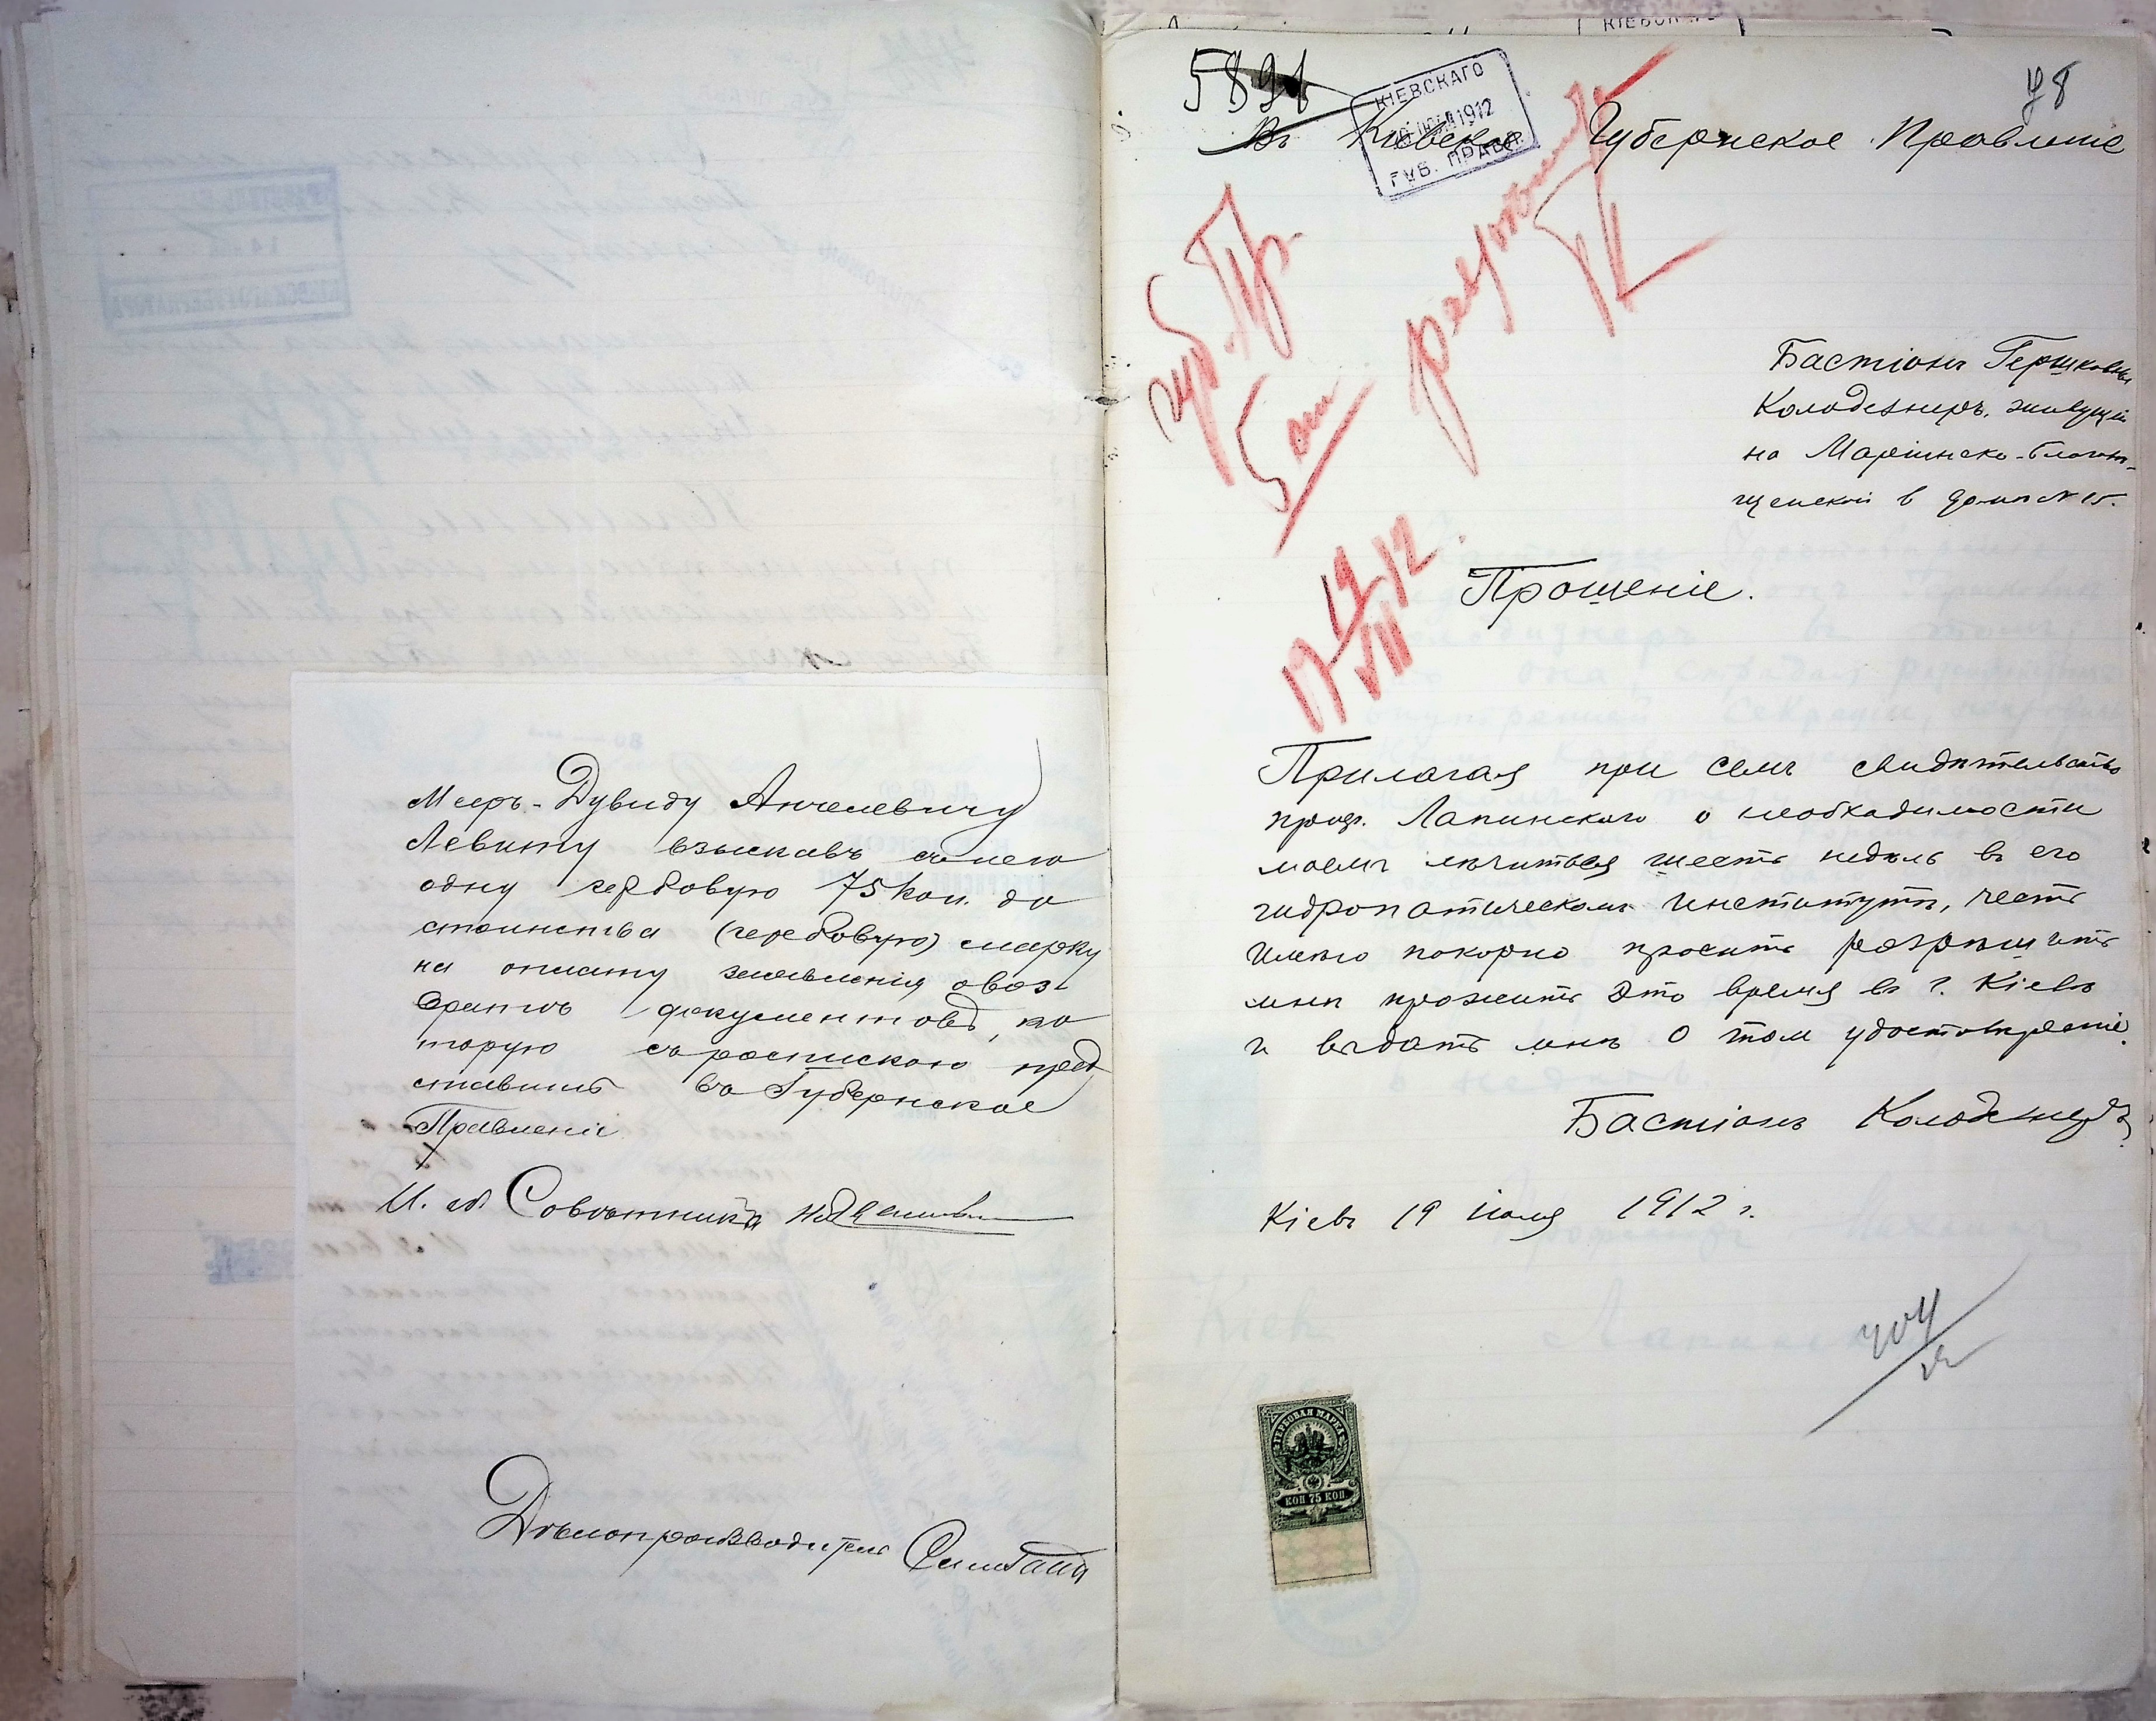 Меер-Дувиду Анчелевичу
Левиту взыскавъ съ него
одну гербовую 75 коп. до
стоинства (гербовую) марку
на оплату заявленія о воз
вратѣ документовъ, ко
торую съ роспискою пред
ставить въ Губернское
Правленіе
И. об. Совѣтника
Дѣлопроизводитель
5891
78
КІЕВСКАГО
1912
ГУБ. ПРАВЛ.
Въ Кіевское Губернское Правленіе
губ. Пр.
5 от
разрѣшить
19
VII 12
Бастіонъ Гершковны
Колодезнеръ, живущей
на Маріинско-Благовѣ-
щенской в домѣ № 15.
Прошеніе.
Прилагая при семъ свидѣтельство
проф. Лапинскаго о необходимости
моемъ лѣчиться шесть недѣль въ его
гидропатическомъ институтѣ, честь
имѣю покорно просить разрѣшить
мнѣ прожить это время въ г. Кіевѣ
и выдать мнѣ о том удостовѣреніе.
Бастіонъ Колодезнеръ
Кіевъ 19 іюля 1912 г.
404
ГЕРБОВАЯ МАРКА
КОП 75 КОП.